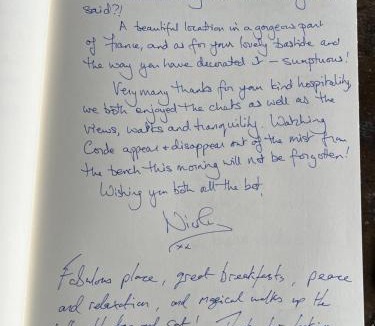 said?!
A beautiful location in a gorgeous part
of France, and as for your lovely bastide and
the way you have decorated it – sumptuous!
Very many thanks for your kind hospitality,
we both enjoyed the chats as well as the
views, walks and tranquility. Watching
Corde appear + disappear out of the mist from
the bench this morning will not be forgotten!
Wishing you both all the best,
xx
Fabulous place, great breakfasts, peace
and relaxation, and magical walks up the